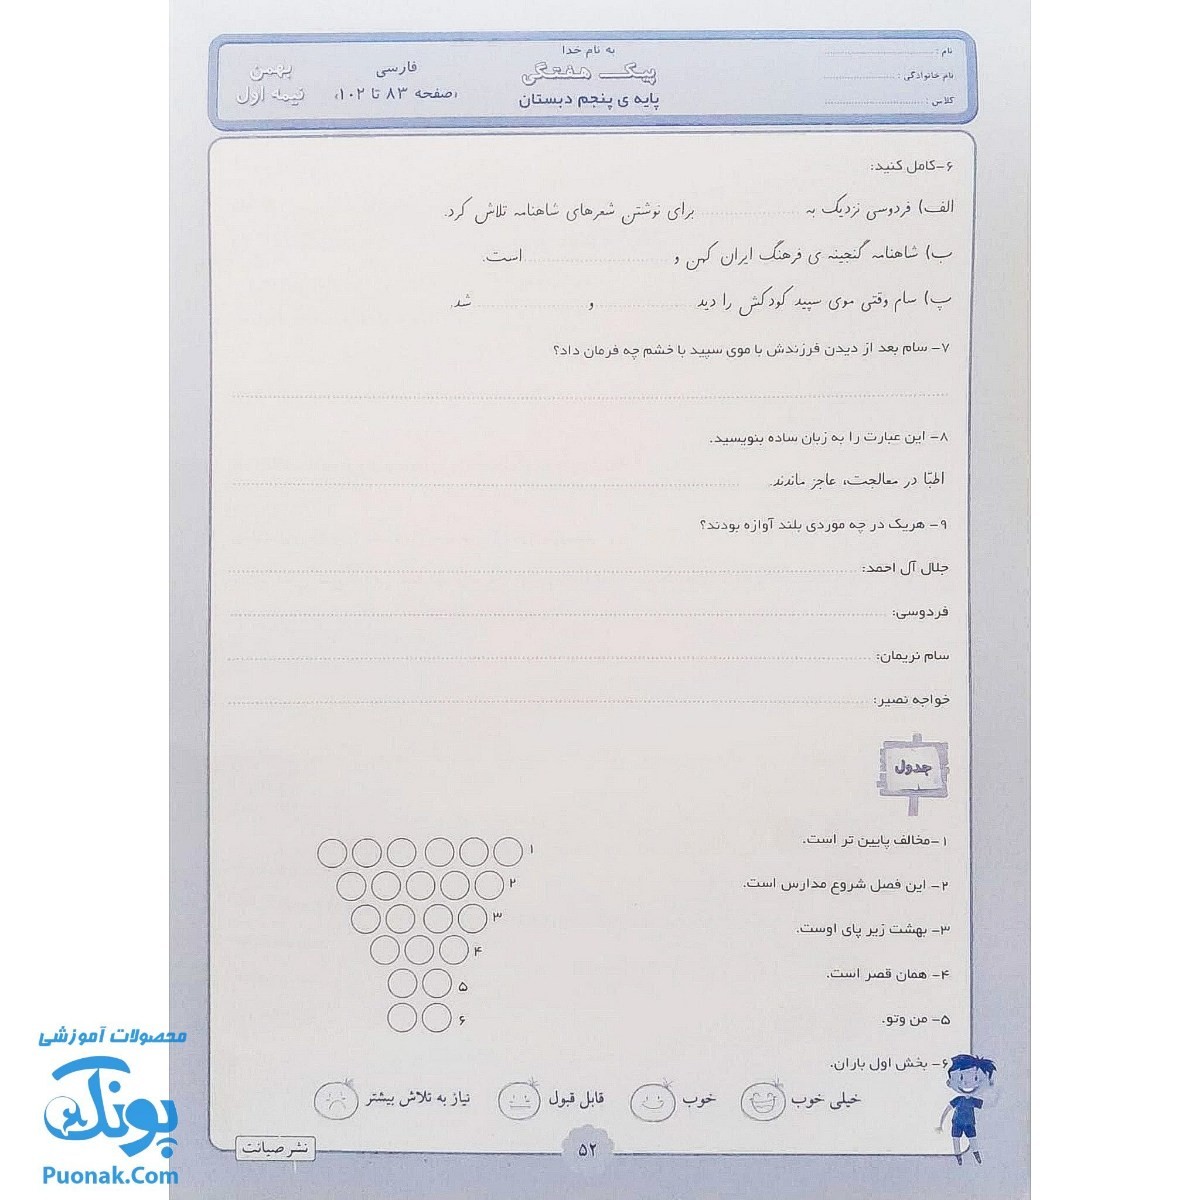 به نام خدا
پیک هفتگی
پایه ی پنجم دبستان
نام : ........................
نام خانوادگی : ................
کلاس : ........................
فارسی
«صفحه ۸۳ تا ۱۰۲»
بهمن
نیمه اول
۶-کامل کنید:
الف) فردوسی نزدیک به .................... برای نوشتن شعرهای شاهنامه تلاش کرد.
ب) شاهنامه گنجینه ی فرهنگ ایران کهن و .............................. است.
پ) سام وقتی موی سپید کودکش را دید .................... و ........................ شد.
۷- سام بعد از دیدن فرزندش با موی سپید با خشم چه فرمان داد؟
۸- این عبارت را به زبان ساده بنویسید.
اطبّا در معالجت، عاجز ماندند. ........................................
۹- هریک در چه موردی بلند آوازه بودند؟
جلال آل احمد: ........................................
فردوسی: ........................................
سام نریمان: ........................................
خواجه نصیر: ........................................
جدول
۱-مخالف پایین تر است.
۲- این فصل شروع مدارس است.
۳- بهشت زیر پای اوست.
۴- همان قصر است.
۵- من وتو.
۶- بخش اول باران.
۱
۲
۳
۴
۵
۶
خیلی خوب
خوب
قابل قبول
نیاز به تلاش بیشتر
۵۲
نشر صیانت
محصولات آموزشی
پونک
Puonak.Com